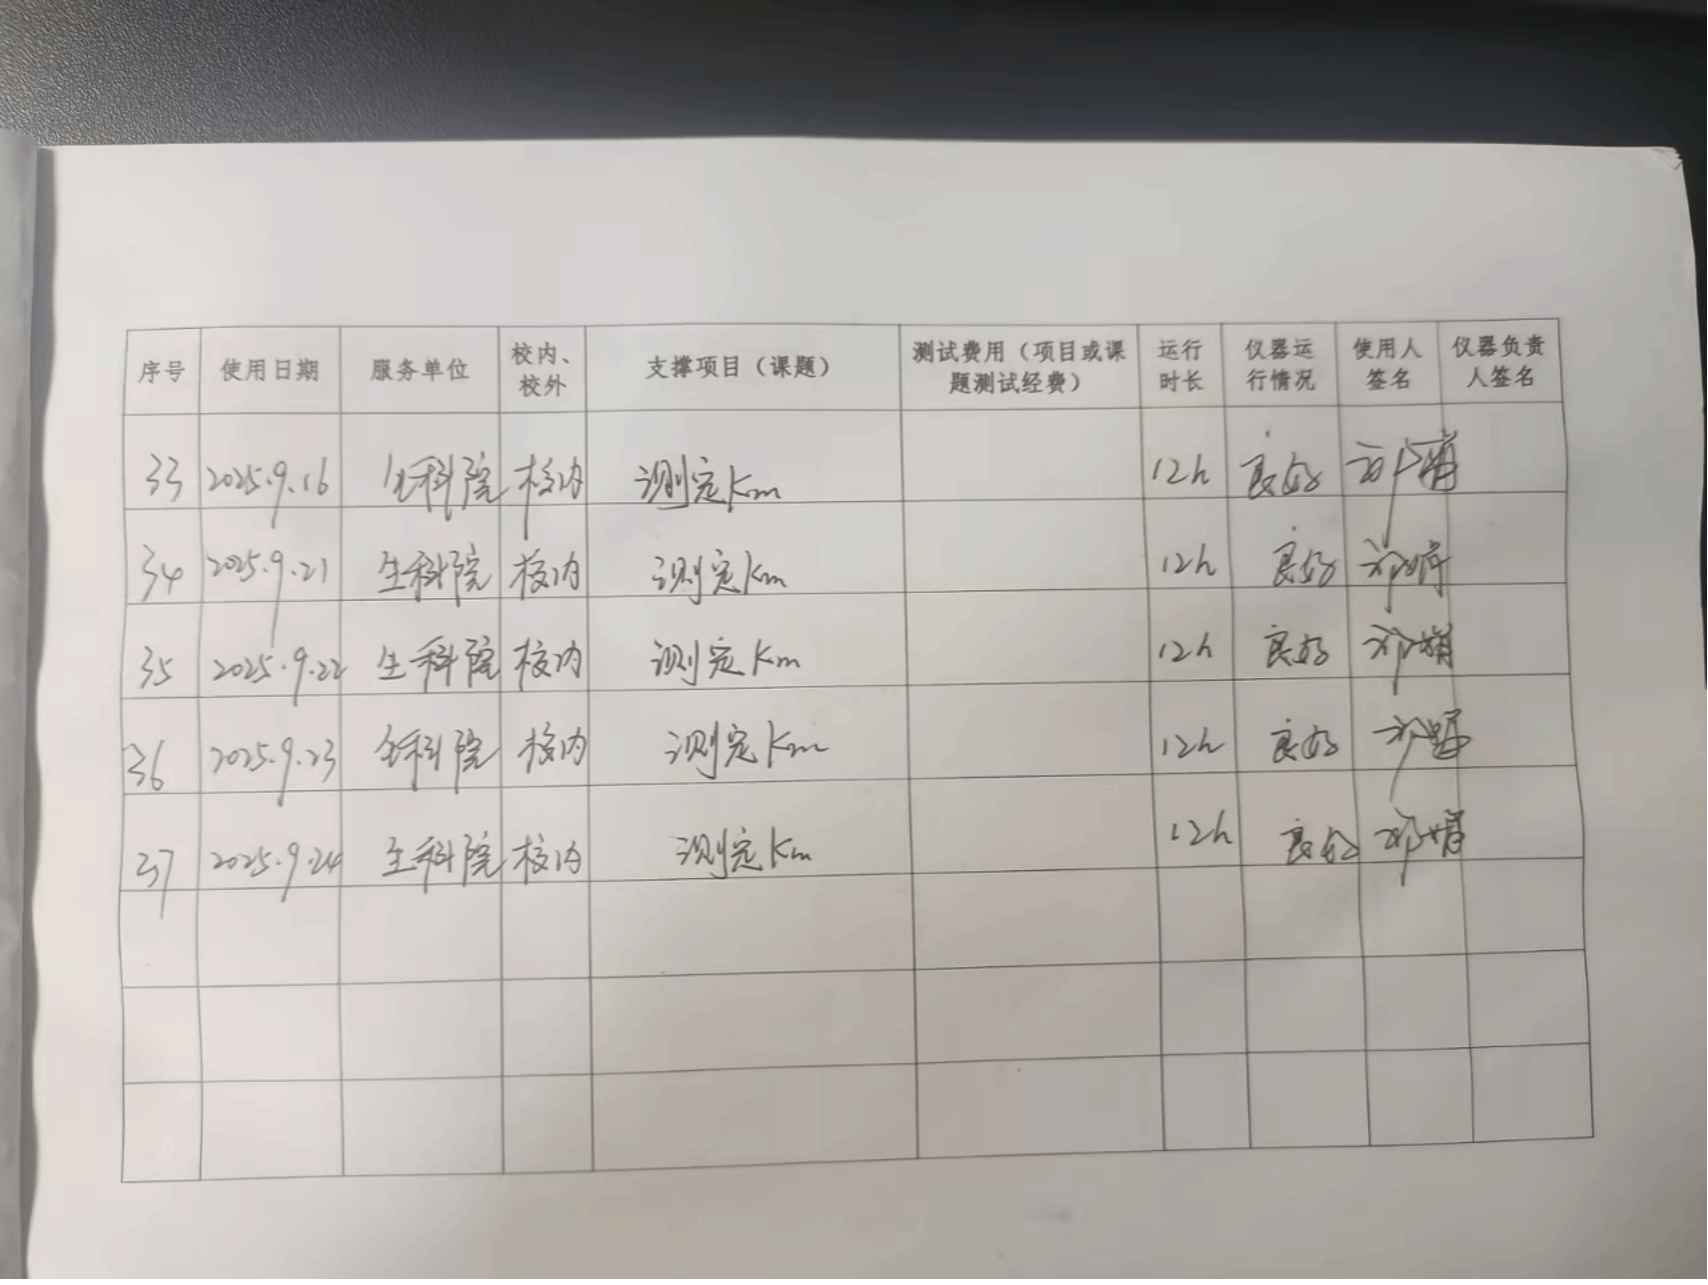 序号 使用日期 服务单位 校内、校外 支撑项目（课题） 测试费用（项目或课题测试经费） 运行时长 仪器运行情况 使用人签名 仪器负责人签名
33 2025.9.16 生科院 校内 测定Km 12h 良好
34 2025.9.21 生科院 校内 测定Km 12h 良好
35 2025.9.22 生科院 校内 测定Km 12h 良好
36 2025.9.23 生科院 校内 测定Km 12h 良好
37 2025.9.24 生科院 校内 测定Km 12h 良好